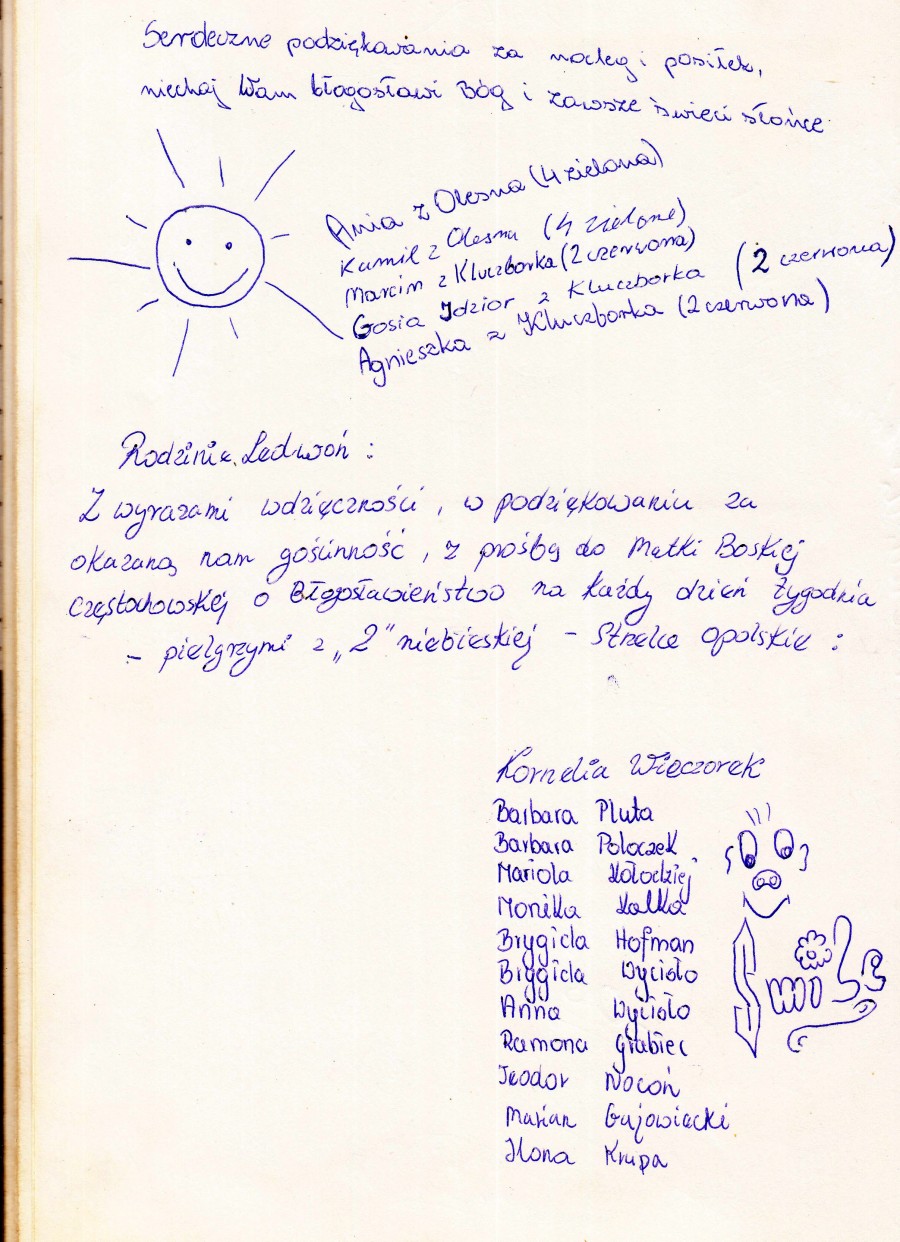 Serdeczne podziękowania za nocleg i posiłek,
niechaj Wam błogosławi Bóg i zawsze świeci słońce
Ania z Olesna (4 zielona)
Kamil z Olesna (4 zielone)
Marcin z Kluczborka (2 czerwona)
Gosia Jdzior z Kluczborka (2 czerwona)
Agnieszka z Kluczborka (2 czerwona)
Rodzinie Ledwoń :
Z wyrazami wdzięczności, w podziękowaniu za
okazaną nam gościnność, z prośbą do Matki Boskiej
Częstochowskiej o Błogosławieństwo na każdy dzień tygodnia
- pielgrzymi z „2" niebieskiej - Strzelce Opolskie :
Kornelia Wieczorek
Barbara Pluta
Barbara Poloczek
Mariola Kołodziej
Monika Kalka
Brygida Hofman
Brygida Wycisło
Anna Wycisło
Ramona Grabiec
Teodor Nocoń
Marian Gajowiecki
Ilona Krupa
Smile